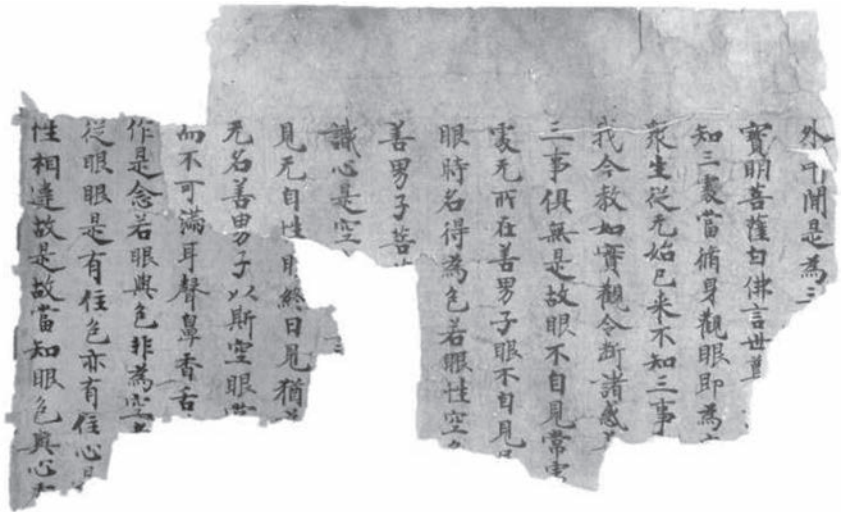 外中間是為三
寶明菩薩白佛言世尊
知三處當脩身觀眼即為
衆生從无始已来不知三事
我今教如實觀令斷諸惑
三事俱無是故眼不自見常
處无所在善男子眼不自見
眼時名得為色若眼性空
善男子菩
識心是空
見无自性眼終日見猶
无名善男子以斯空眼
而不可滿耳聲鼻香舌
作是念若眼與色非為空
從眼眼是有住色亦有住心
性相違故是故當知眼色與心